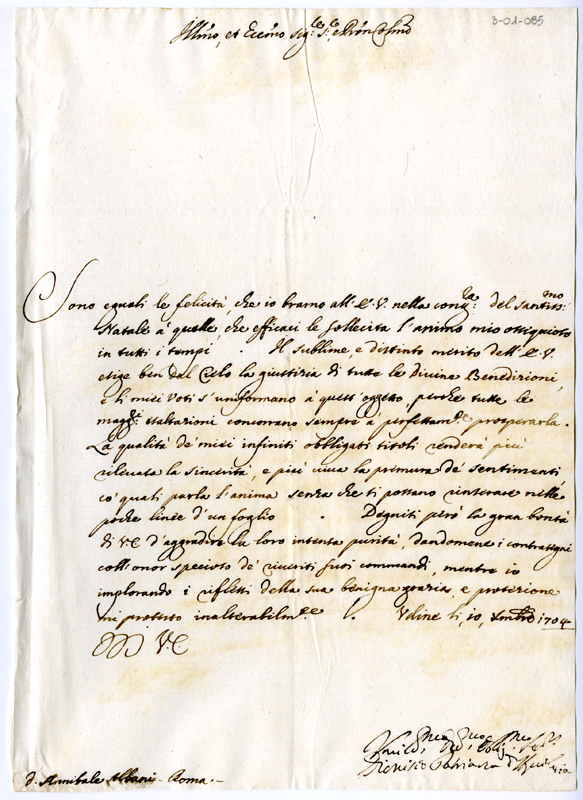 3-01-085
Illmo, et Eccmo Sig.r
Sono eguali le felicità, che io bramo all'E.V. nella cong.ra del Santiss.mo
Natale à quelle che efficaci le sollecita l'animo mio ossequioso
in tutti i tempi. Il sublime, e distinto merito dell'E.V.
esige ben dal Cielo la giustizia di tutte le Divine Benedizioni,
e li miei Voti s'uniformano à quest'oggetto, perche tutte le
magg.ri esaltazioni concorrano sempre à perfettam.te prosperarla.
La qualità de' miei infiniti obbligati titoli renderà più
rilevata la sincerità, e più viva la premura de' sentimenti
co' quali parla l'anima senza che si possano rinserare nelle
poche linee d'un foglio. Degnisi però la gran bontà
di VE d'aggradire la loro intenta purità, dandomene i contrassegni
coll'onor specioso de' riveriti suoi commandi, mentre io
implorando i riflessi della sua benigna grazia, e protezione
mi protesto inalterabilm.te. Udine li, 10, Xmbre 1704
VE
Dionisio Patriarca d'Aquileia
d. Annibale Albani - Roma.